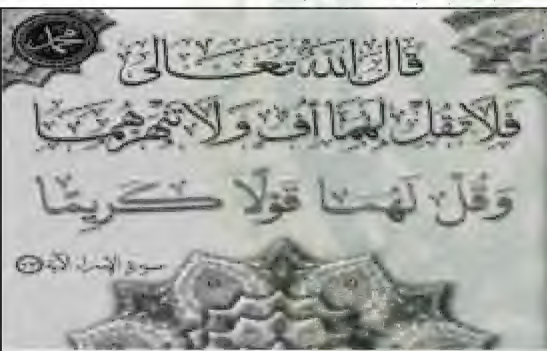 محمد
قال الله تعالى
فَلَا تَقُل لَّهُمَا أُفٍّ وَلَا تَنْهَرْهُمَا
وَقُل لَهُمَا قَوْلًا كَرِيمًا
سورة الإسراء الآية ٢٣